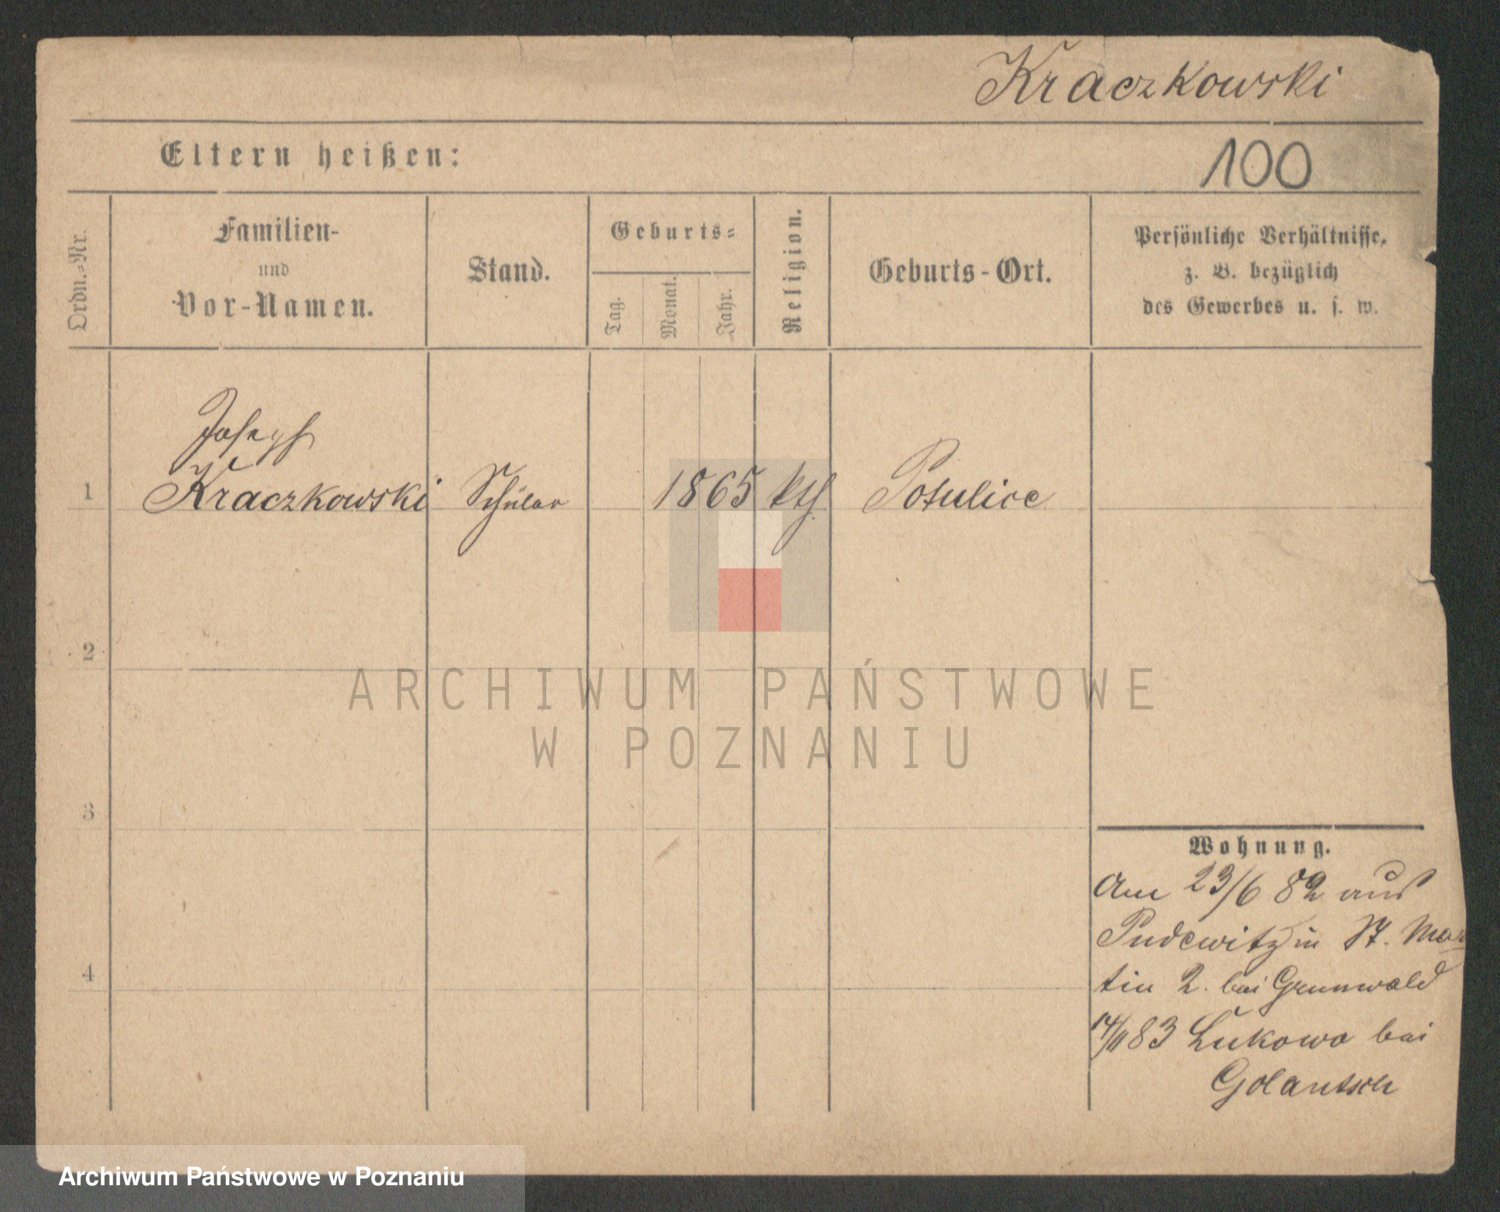 Kraczkowski
Eltern heißen:
100
Ordn.-Nr.
Familien-
und
Vor-Namen.
Stand.
Geburts-
Tag.
Monat.
Jahr.
Religion.
Geburts-Ort.
Persönliche Verhältnisse,
z. B. bezüglich
des Gewerbes u. s. w.
Joseph
1 Kraczkowski Schüler 1865 kth. Potulice
2
ARCHIWUM PAŃSTWOWE
W POZNANIU
3
Wohnung.
Am 23/6 82 aus
Pudewitz in St. Mar
4
tin 2. bei Grunwald
14/11 83 Lukowo bei
Golantsch
Archiwum Państwowe w Poznaniu